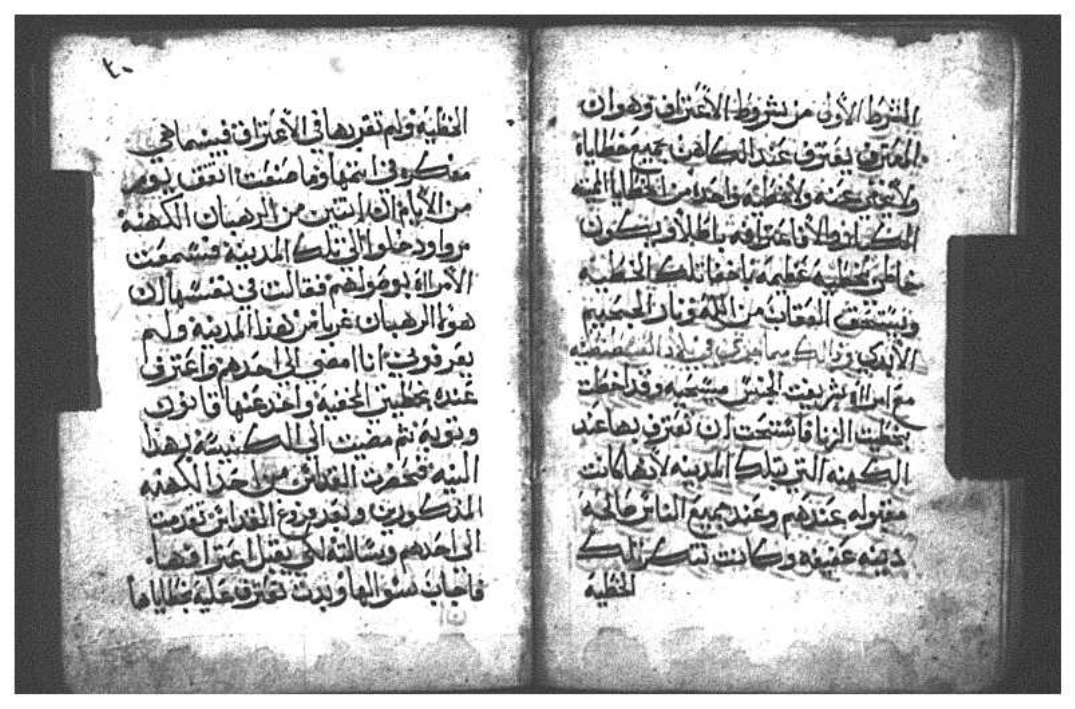 الشرط الاول من شروط الاعتراف وهو ان
المعترف يعترف عند الكاهن بجميع خطاياه
ولا يخفي عنه ولا خطيه واحده من الخطايا المميته
فاعترافه باطلا ويكون
خاطي بخطيه عظيمه باخفا تلك الخطيه
ويستحق العقاب من الله ونار الجحيم
الابدي وذالك في بلاد
مع امراة شريفت الجنس مسيحيه وقد اخطت
بخطيت الزنا فاستحت ان تعترف بها عند
الكهنه التي بتلك المدينه لانها كانت
مقبوله عندهم وعند جميع الناس صالحه
دينه عفيفه وكانت تفتكر تلك
الخطيه
٤٠
الخطيه ولم تقر بها في الاعتراف فبينما هي
مفتكره في اثمها وما صنعت اتفق يوم
من الايام ان اتنين من الرهبان الكهنه
مروا ودخلوا الى تلك المدينه فسمعت
الامراة بوصولهم فقالت في نفسها ان
هولا الرهبان غربا من هذا المدينه ولم
يعرفوني انا امضي الى احدهم واعترف
عنده بخطيتي المخفيه واخد عنها قانون
وتوبه ثم مضيت الى الكنيسه بهذا
النيه فحضرت القداس من احد الكهنه
المذكورين وبعد فروغ القداس تقدمت
الى احدهم وسالته لكي يقبل اعترافها
فاجاب سوالها وبدت تعترف عليه بخطاياها